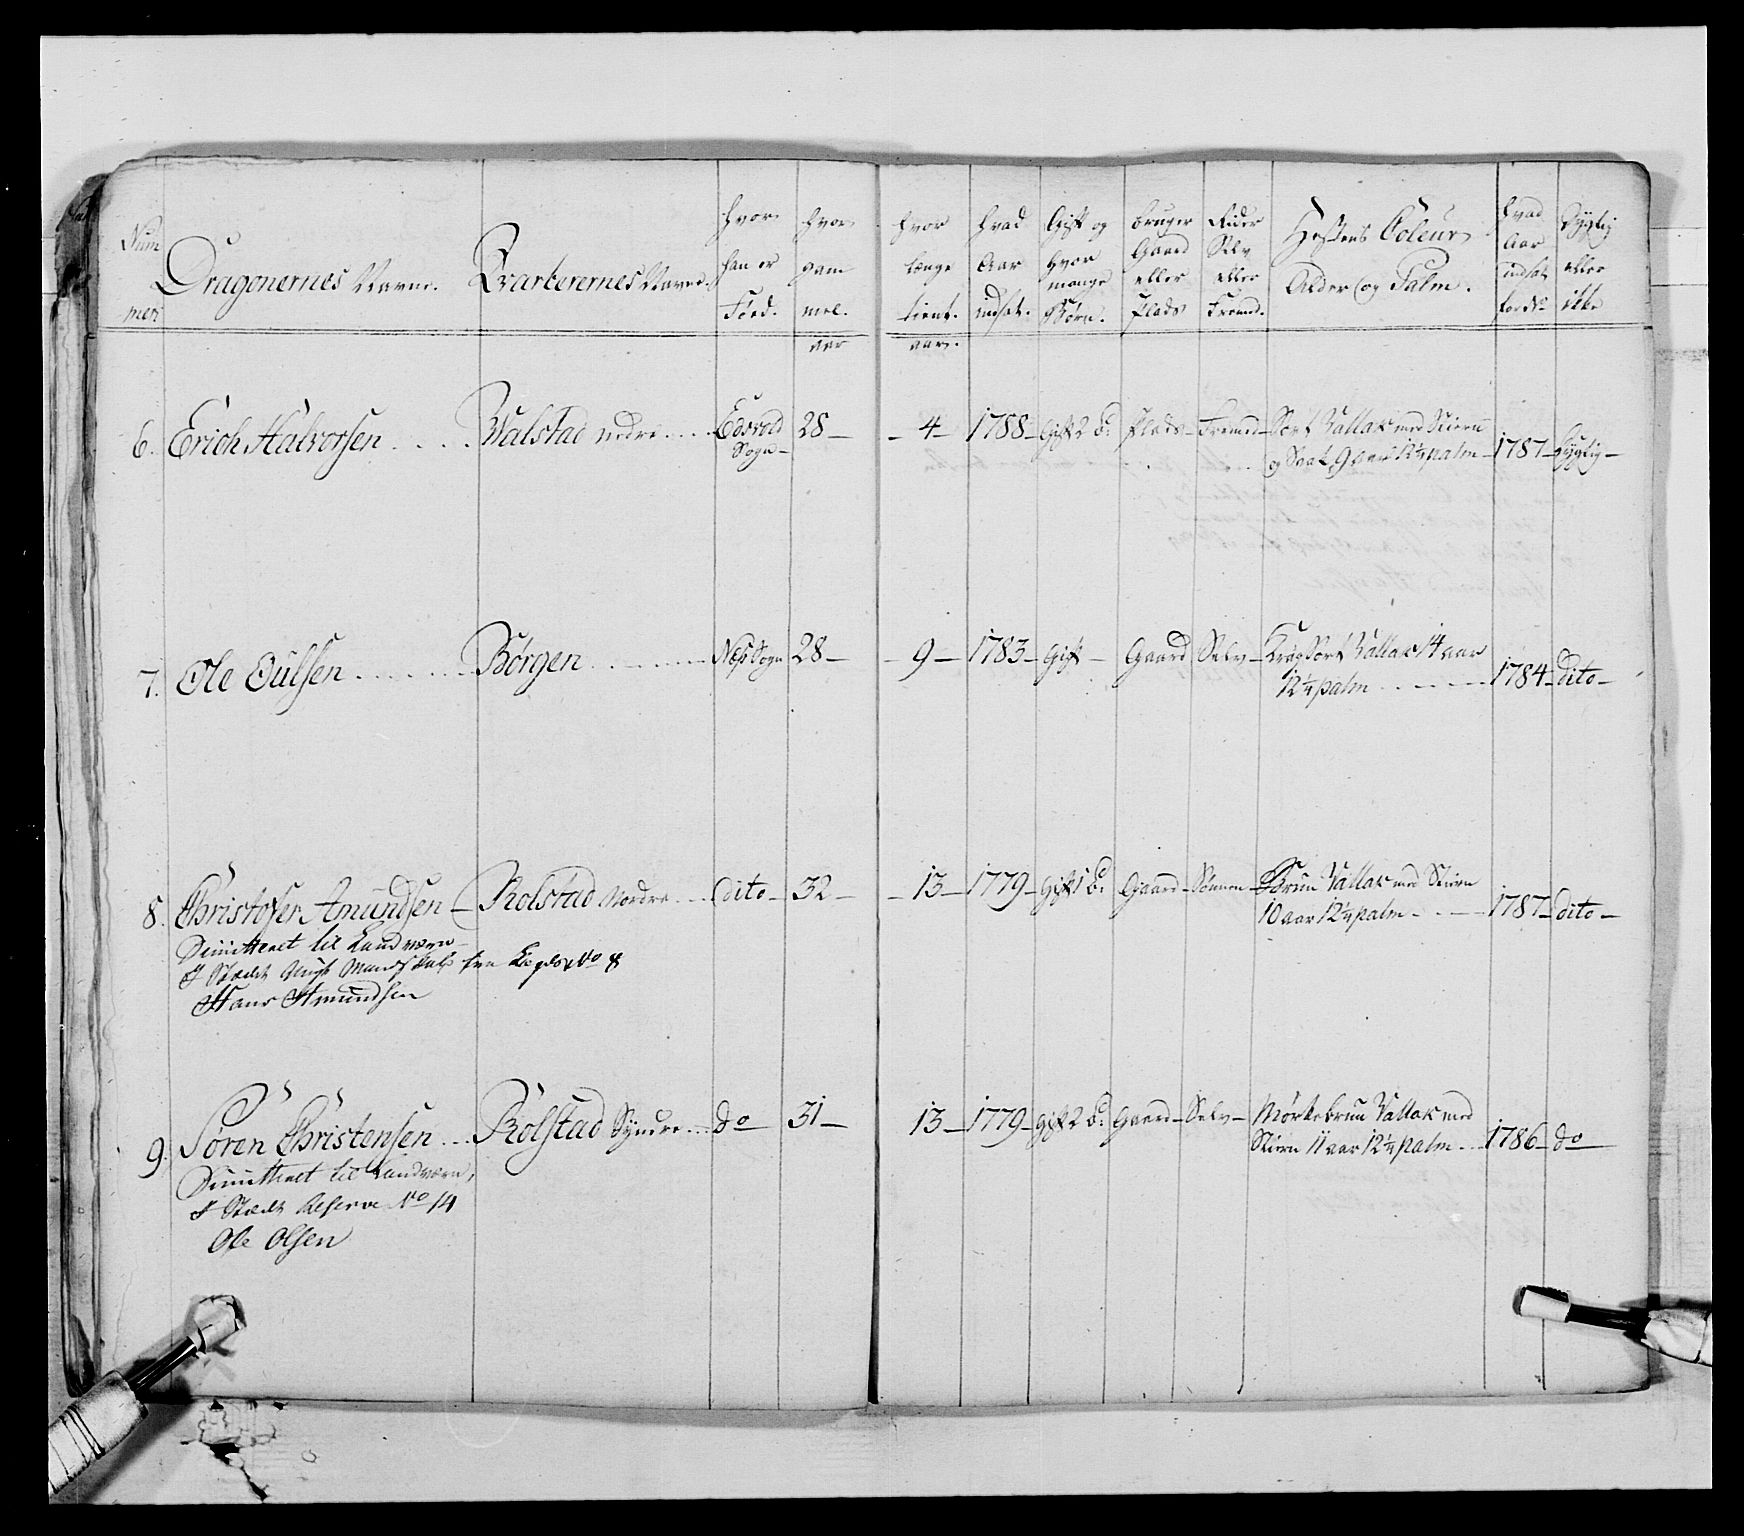 Num
mer
Dragonernes Navne.
Qvarterernes Navne.
hvor
han er
Föd.
hvor
gam
mel.
hvor
længe
tient.
hvad
Aar
indsat.
Gift og
hvor
mange
Börn.
bruger
Gaard
eller
Plads
Rider
Selv
eller
Fremd.
Hestens Coleur
Alder og Palm.
hvad
Aar
indsat
Dygtig
eller
ikke
aar
aar.
6. Erich Halvorsen Walstad nedre Edsvold 28 4 1788 Gift 2 b: Plads Fremed Sort Vallak med Stiern
Sogn og 9 aar 12½ palm 1787 Dygtig
7. Ole Oulsen Börgen Næs Sogn 28 9 1783 Gift Gaard Selv Sort Vallak 14 aar
12¼ palm 1784 dito
8. Christofer Amundsen Rolstad Nordre dito 32 13 1779 gift 1 b: Gaard Brun Vallak med Stiern
10 aar 12¼ palm 1787 dito
Dimitteret til Landværn
I Stædet Mandskab fra Lægds No 8
Hans Amundsen
9. Sören Christensen Rolstad Syndre do 31 13 1779 gift 2 b: Gaard Selv Mörkebrun Vallak med
Stiern 11 aar 12½ palm 1786 do
Dimitteret til Landværn,
I Stædet Reserve No 14
Ole Olsen